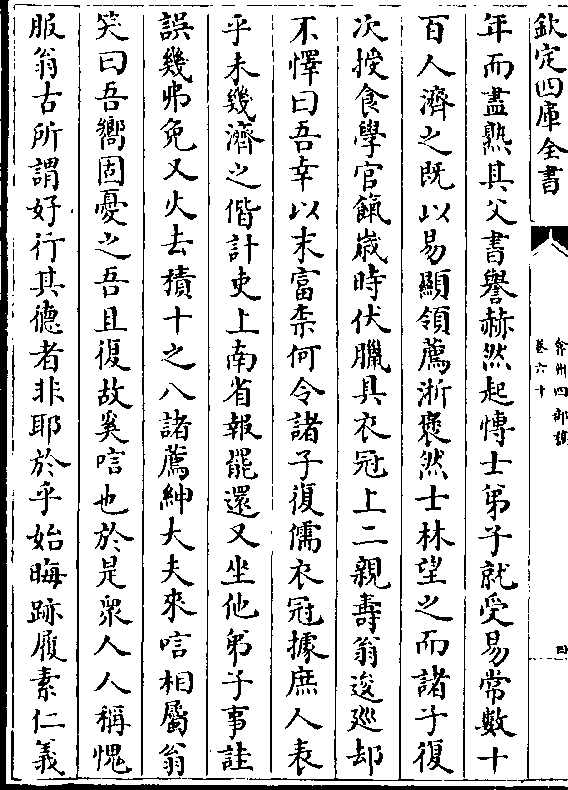 欽定四庫全書
弇州四部稿
卷六十
四
年而盡熟其父書譽赫然起博士弟子就受易常數十
百人濟之既以易顯領薦浙褎然士林望之而諸子復
次授食學官餼歲時伏臘具衣冠上二親壽翁逡廵却
不懌曰吾幸以末富柰何令諸子復儒衣冠據庶人表
乎未幾濟之偕計吏上南省報罷還又坐他弟子事詿
誤幾弗免又火去積十之八諸薦紳大夫來唁相屬翁
笑曰吾嚮固憂之吾且復故奚唁也於是衆人人稱愧
服翁古所謂好行其德者非耶於乎始晦跡履素仁義